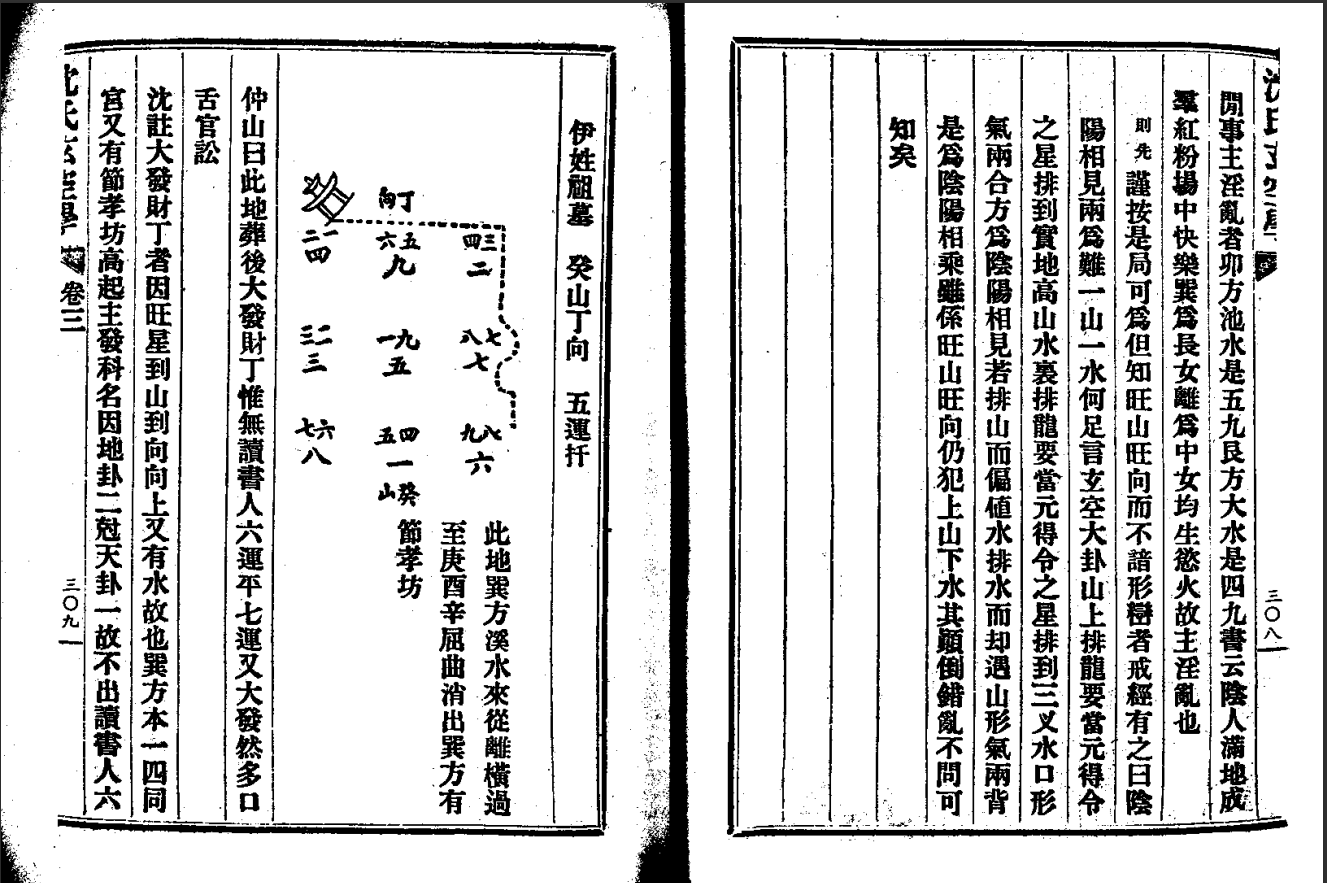 沈氏玄空學
三〇八
閒事主淫亂者卯方池水是五九艮方大水是四九書云陰人滿地成
羣紅粉場中快樂巽爲長女離爲中女均生慾火故主淫亂也
則先謹按是局可爲但知旺山旺向而不諳形巒者戒經有之曰陰
陽相見兩爲難一山一水何足言玄空大卦山上排龍要當元得令
之星排到實地高山水裏排龍要當元得令之星排到三叉水口形
氣兩合方爲陰陽相見若排山而偏値水排水而却遇山形氣兩背
是爲陰陽相乘雖係旺山旺向仍犯上山下水其顚倒錯亂不問可
知矣
伊姓祖墓　癸山丁向　五運扦
丁向
三四 二
五六 九
一二 四
七八 七
九一 五
二三 三
八九 六
四五 一
六七 八
癸山
此地巽方溪水來從離橫過
至庚酉辛屈曲消出巽方有
節孝坊
仲山曰此地葬後大發財丁惟無讀書人六運平七運又大發然多口
舌官訟
沈註大發財丁者因旺星到山到向向上又有水故也巽方本一四同
宮又有節孝坊高起主發科名因地卦二尅天卦一故不出讀書人六
沈氏玄空學
卷三
三〇九